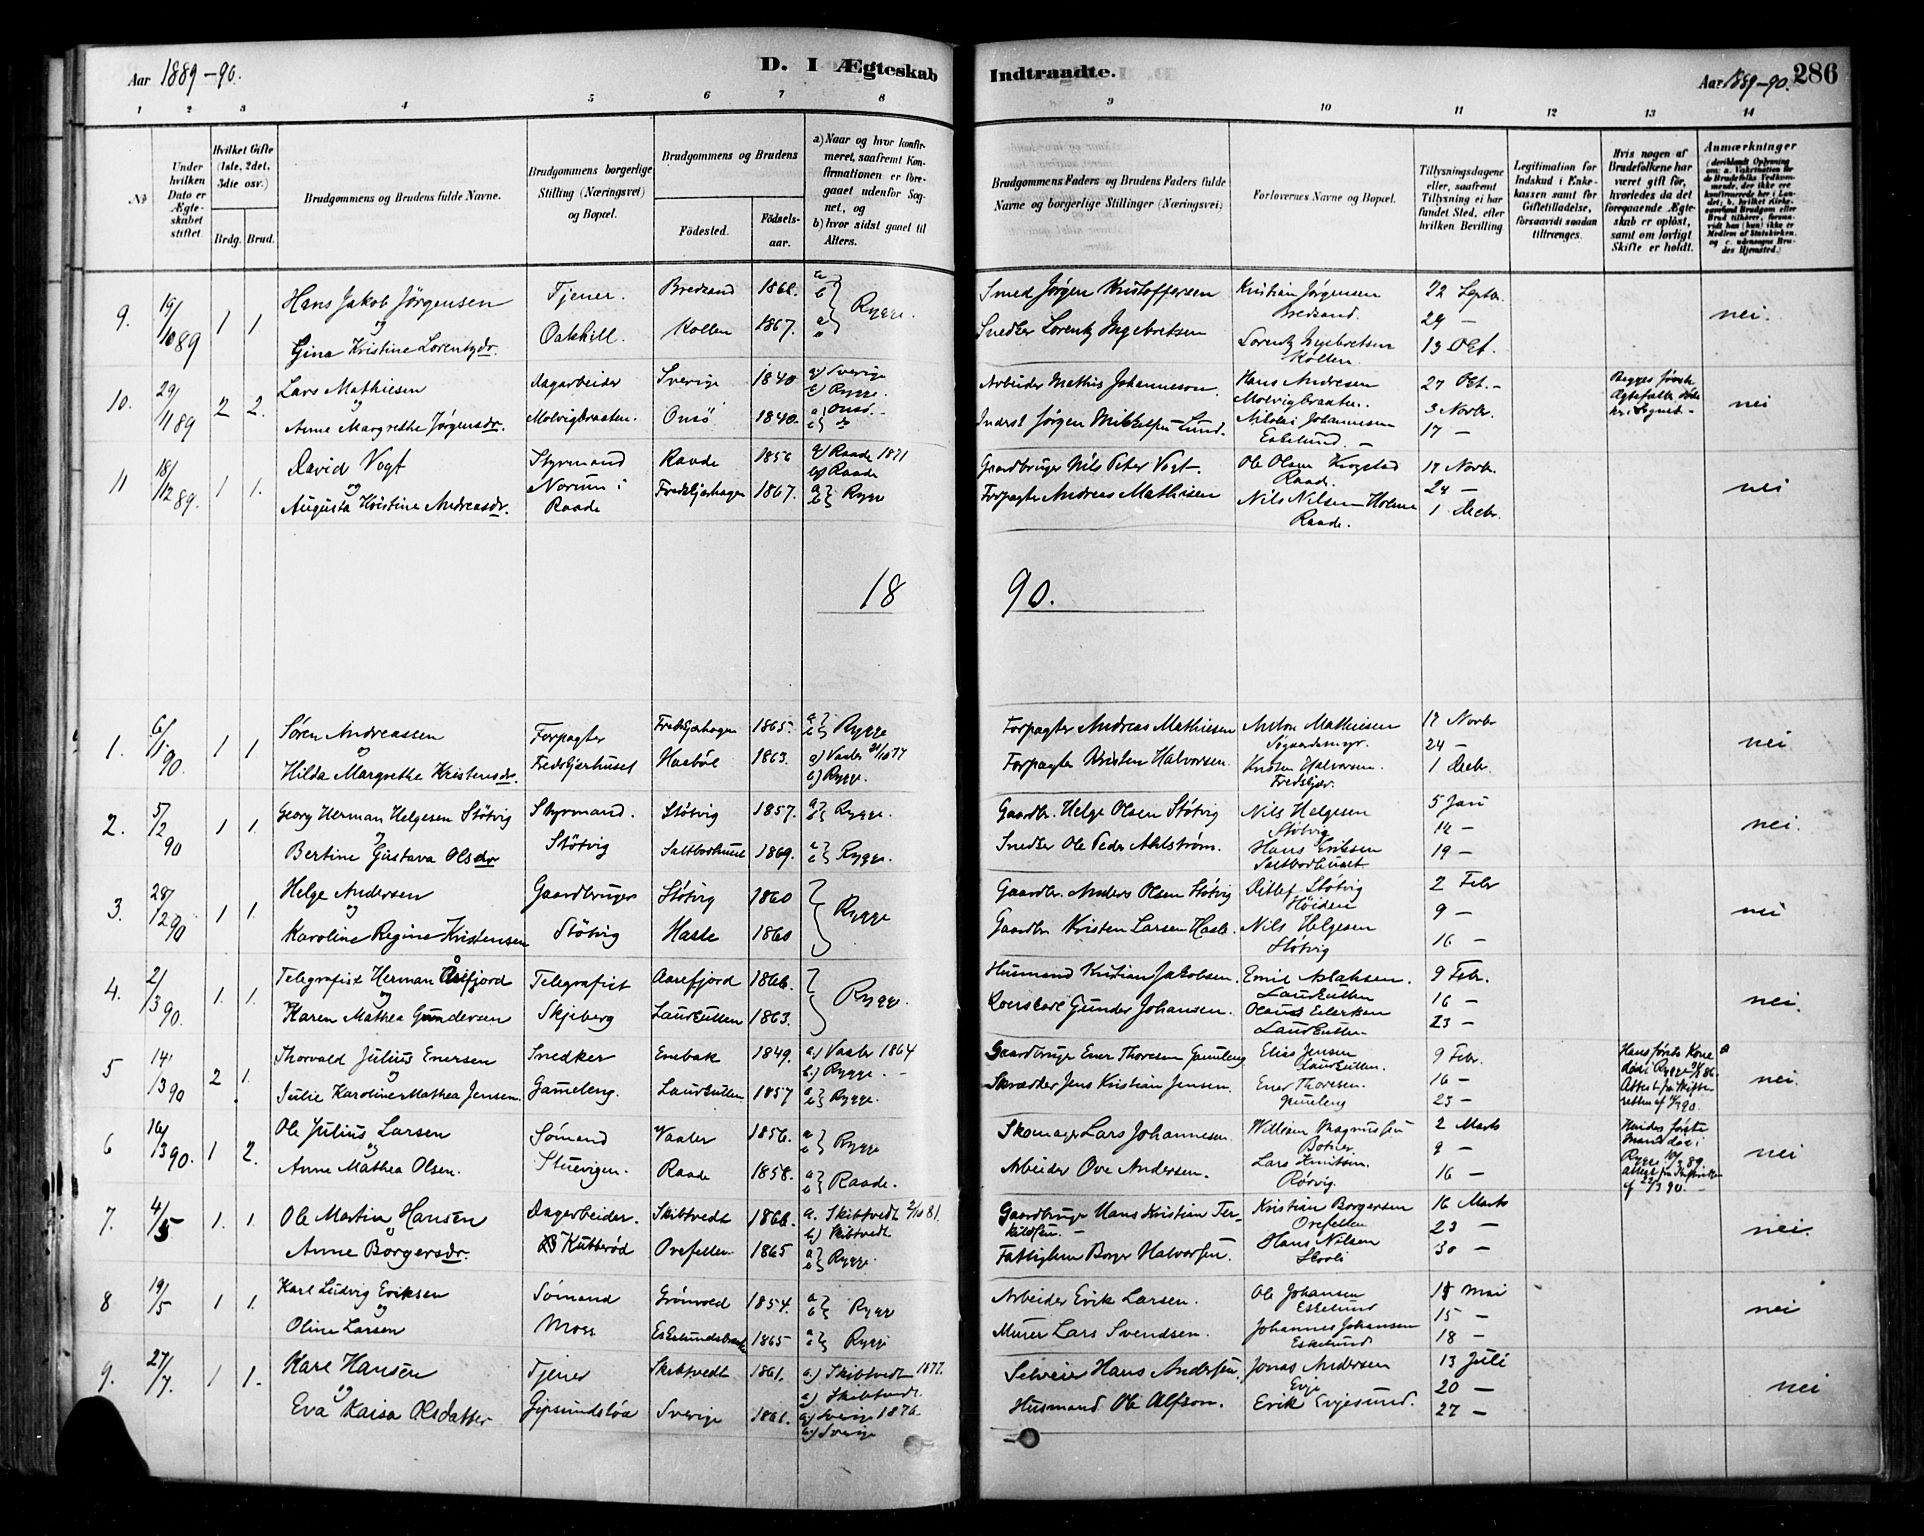 Aar 1889-90.
D. I Ægteskab
Indtraadte.
Aar 1889-90.
286
1 2 3 4 5 6 7 8
9 10 11 12 13 14
No
Under hvilken Dato er Ægteskabet stiftet.
Hvilket Gifte (1ste, 2det, 3die osv.)
Brdg. Brud.
Brudgommens og Brudens fulde Navne.
Brudgommens borgerlige Stilling (Næringsvei) og Bopæl.
Brudgommens og Brudens
Fødested. Fødselsaar.
a) Naar og hvor konfirmeret, saafremt Konfirmationen er foregaaet udenfor Sognet, og
b) hvor sidst gaaet til Alters.
Brudgommens Faders og Brudens Faders fulde Navne og borgerlige Stillinger (Næringsvei)
Forlovernes Navne og Bopæl.
Tillysningsdagene eller, saafremt Tillysning ei har fundet Sted, efter hvilken Bevilling
Legitimation for Indskud i Enkekassen samt for Giftetilladelse, forsaavidt saadan tiltrænges.
Hvis nogen af Brudefolkene har været gift før, hvorledes da det foregaaende Ægteskab er opløst, samt om lovligt Skifte er holdt.
Anmærkninger
9. 19/10 89 1 1. Hans Jakob Jörgensen Tjener. Bredsand 1868. a b Rygge. Smed Jørgen Kristoffersen Kristian Jørgensen Bredsand. 22 Septbr. nei.
og Gina Kristine Lorentzdr. Oakhill. Kollen 1867. Snedker Lorentz Ingebretsen Lorentz Ingebretsen Kollen. 29 - 13 Oct.
10. 29/11 89 2 2. Lars Mathiesen Dagarbeider Sverige 1840. a) Sverige b) Rygge. Arbeider Mathis Johanneson. Hans Andresen Molvigbraaten. 27 Oct. Begges første nei
og Anne Margrethe Jørgensdr. Molvigbraaten. Onsö 1840. a) Onsö. Inderst Jørgen Mikkelsen Lund. Nikolai Johannesen Eskelund. 3 Novbr. 17 -
11 18/12 89. 1 1. David Vogt Styrmand Raade 1856 a) Raade 1871 b) Raade Gaardbruger Nils Peter Vogt. Ole Olsen Krogstad Raade. 17 Novbr. nei
og Augusta Kristine Andreasdr. Norum i Raade Fredskjærhagen 1867. a) b) Rygge Forpagter Andreas Mathisen Nils Nilsen Holme Raade. 24 - 1 Decbr.
18 90.
1. 6/1 90. 1 1. Søren Andreassen Forpagter Fredskjærhagen 1865. a b Rygge Forpagter Andreas Mathiesen Anton Mathiesen 17 Novbr nei
og Hilda Margrethe Kristensdr. Fredskjærhuset 1863. a) Vaaler b) Rygge. Forpagter Kristen Halvorsen. Kristen Halvorsen. Fredskjær. 24 - 1 Decbr.
2. 5/2 90 1 1. Georg Herman Helgesen Støtvig Styrmand. Støtvig 1857. a b Rygge. Gaardbr. Helge Olsen Støtvig Nils Helgesen Støtvig 5 Jan nei.
og Bertine Gustava Olsdr Støtvig Saltbodhuset 1869. Rygge. Snedker Ole Peder Ahlstrøm. Hans Eriksen Saltbodhuset 12 - 19 -
3. 28/2 90 1 1. Helge Andersen Gaardbruger Støtvig 1860 Rygge Gaardbr. Anders Olsen Støtvig Ditlef Støtvig Høiden 2 Febr nei
og Karoline Regine Kristensen Støtvig Hasle 1860 Gaardbr. Kristen Larsen Hasle. Nils Helgesen Støtvig 9 - 16 -
4. 2/3 90. 1. 1. Telegrafist Herman Årefjord Telegrafist Aarefjord 1866. Rygge. Husmand Kristian Jakobsen. Emil Aslaksen. Laurkullen 9 Febr. nei.
og Karen Mathea Gundersen Skjeberg Laurkullen 1863. Gunder Johansen. Olaus Eilertsen Laurkullen. 16 - 23 -
5 14/3 90 2 1. Thorvald Julius Enersen Snedker Enebak 1849. a) Vaaler 1864 b) Rygge. Gaardbruger Ener Thoresen Gameleng Elias Jensen Laurkullen. 9 Febr. Hans første Kone døde i Rygge nei.
og Julie Karoline Mathea Jensen. Gameleng. Laurkullen 1857 Rygge. Skrædder Jens Kristian Jensen. Ener Thoresen. Gameleng 16 - 23 -
6 16/3 90. 1 2. Ole Julius Larsen Sømand Vaaler 1856. Rygge Skomager Lars Johannesen. William Magnussen Botner. 2 Marts Hendes første Mand døde i Rygge nei
og Anne Mathea Olsen. Stuevigen. Raade 1858. Raade. Arbeider Ove Andersen. Lars Knutsen. Rørvig. 9 - 16 -
7. 4/5 1. 1. Ole Martin Hansen Dagarbeider. Skibtvedt 1868. a. Skibtvedt b) Skibtvedt Gaardbruger Hans Kristian Terkildsen. Kristian Borgersen Orefellen 16 Marts nei.
og Anne Borgersdr. Kubberød Orefellen 1865 Rygge. Borger Halvorsen. Hans Nilsen 23 - 30 -
8 19/5 1 1. Karl Ludvig Eriksen Sømand Grönvold 1854. Rygge Arbeider Erik Larsen. Ole Johansen Eskelund Mai nei
og Oline Larsen Moss 1865 Rygge Murer Lars Svendsen. Johannes Johansen Eskelund 15 - 18 -
9. 27/7. 1 1. Karl Hansen Tjener Skibtvedt 1861. a) Skibtvedt 1877. Skibtvedt. Selveier Hans Andersen. Jonas Andersen Evje 13 Juli nei
og Eva Kaisa Olsdatter Gipsundsløa Sverige a) Sverige 1876. b) Sverige Husmand Ole Alfson. Erik Evjesund. 20 - 27 -